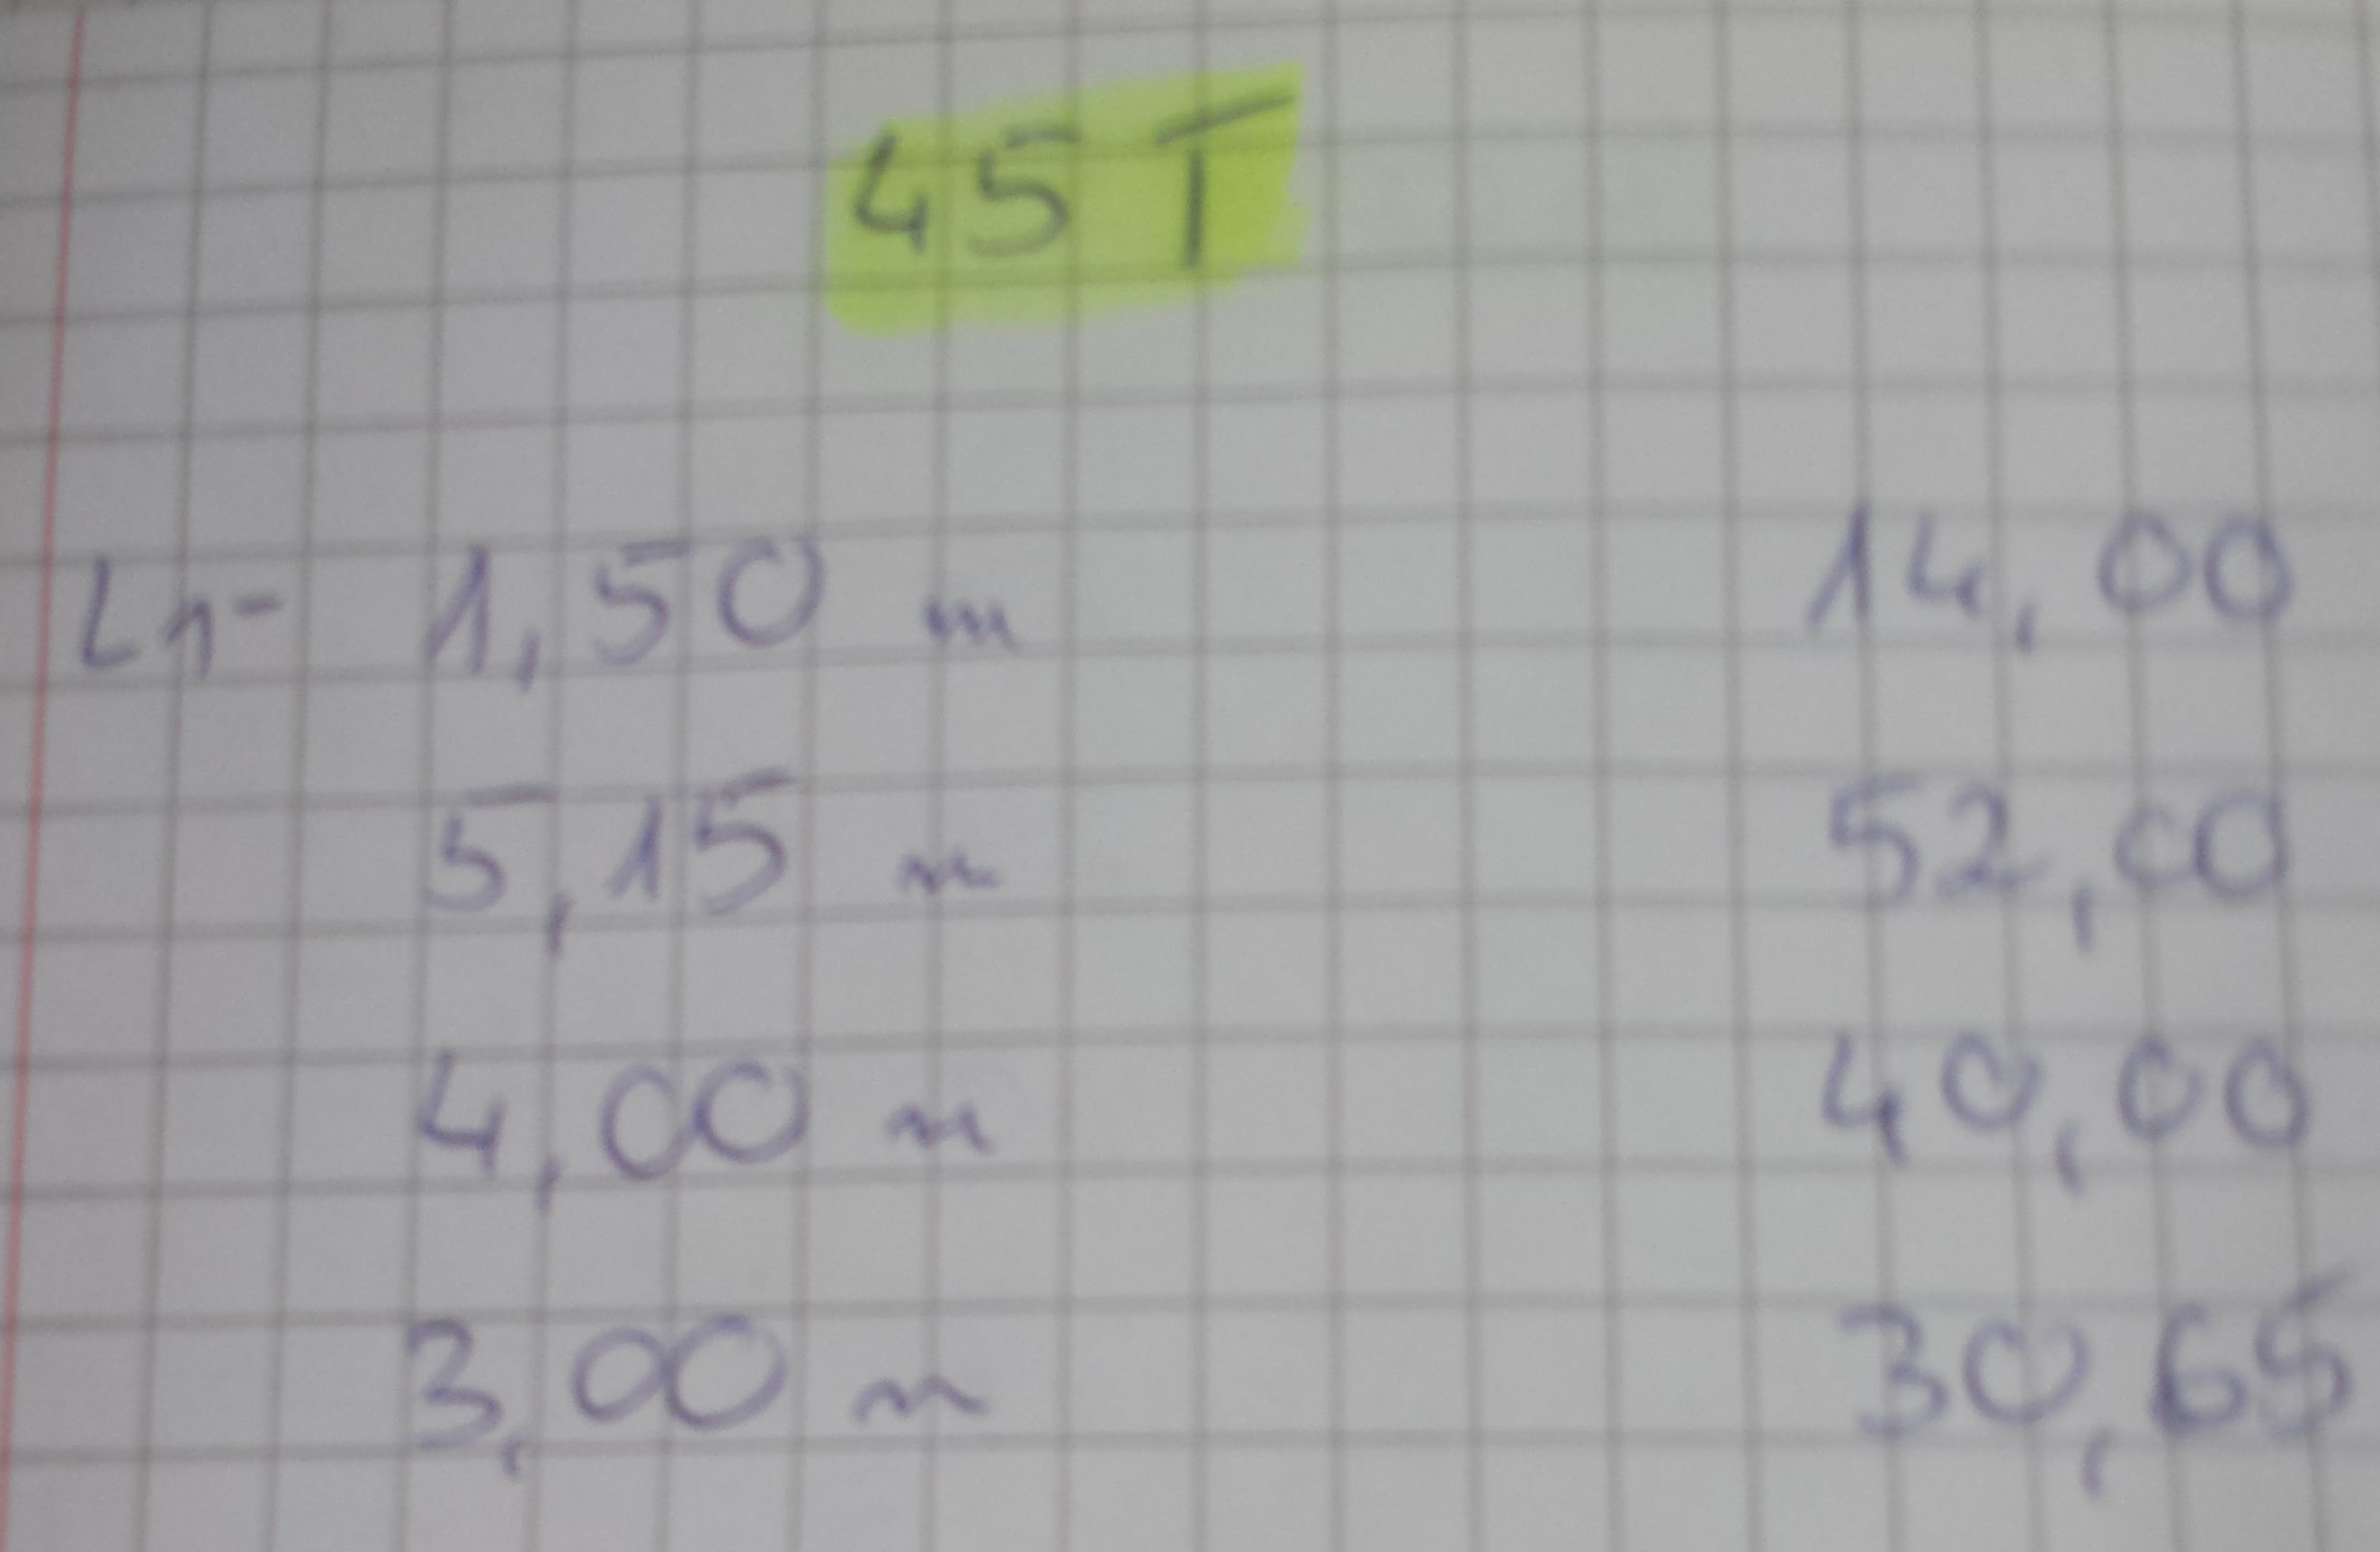 45 T
Ln- 1,50 m 14,00
5,15 m 52,00
4,00 m 40,00
3,00 m 30,65